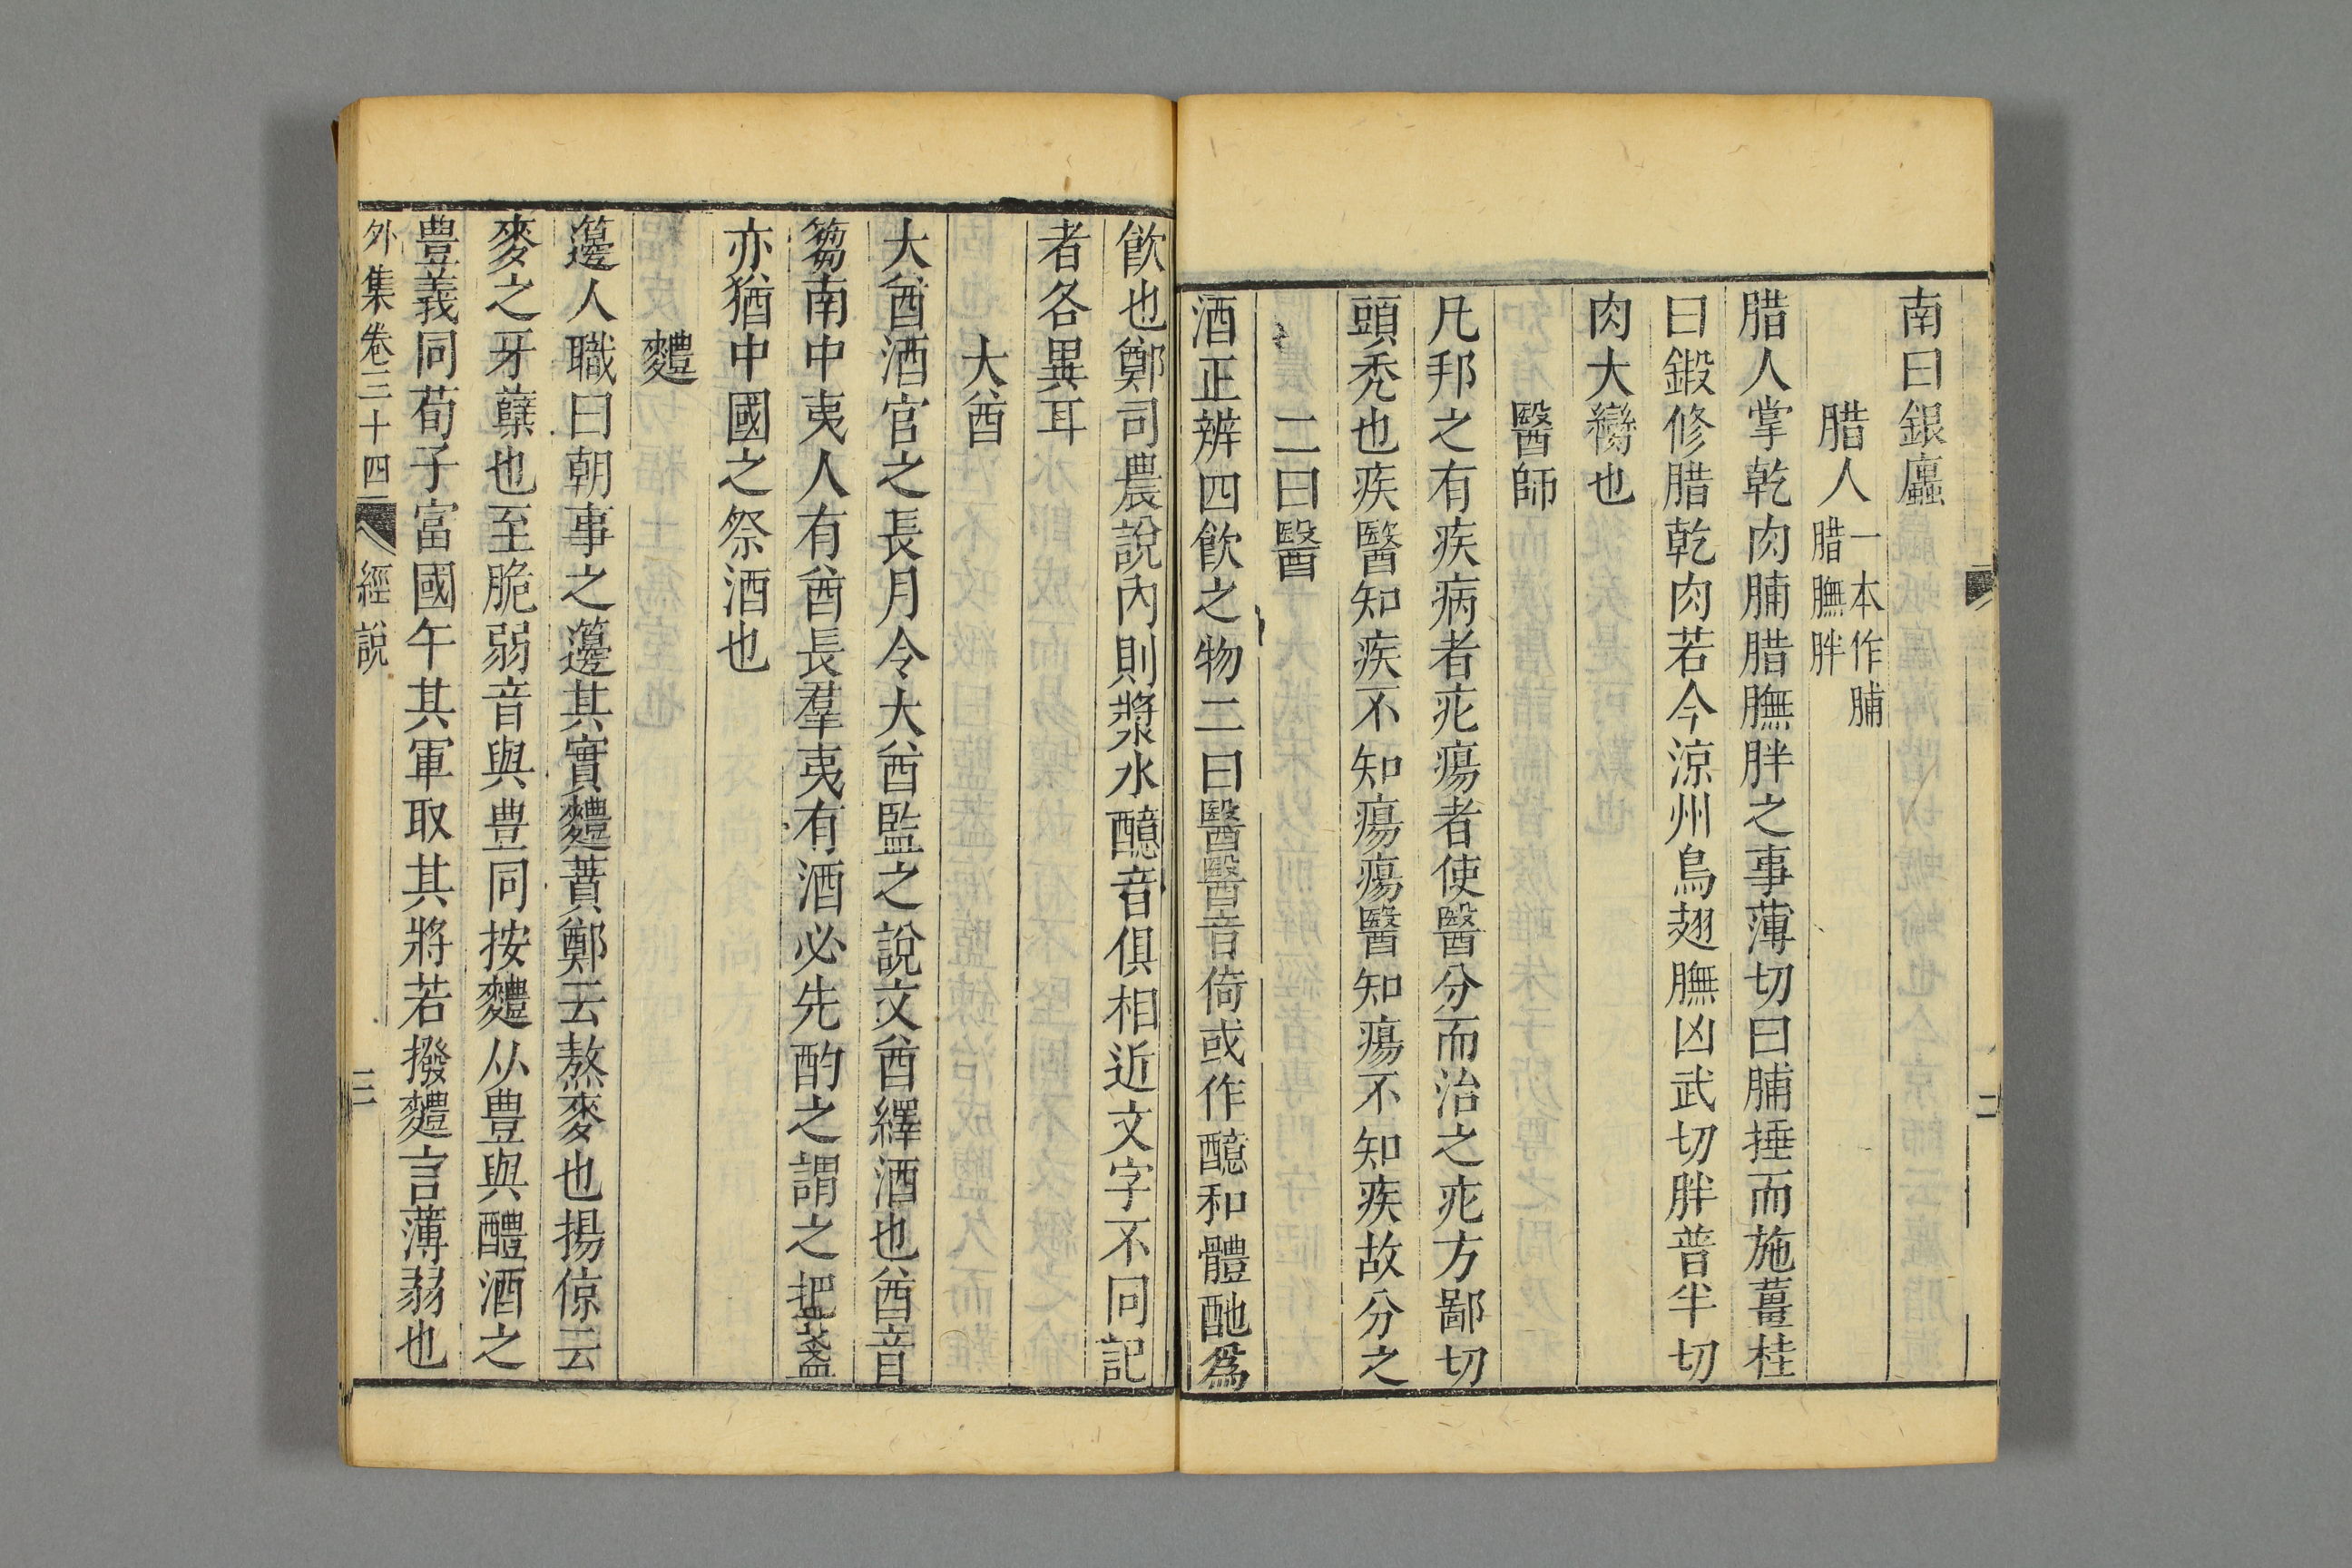 南曰銀蠯
腊人一本作脯
腊膴胖
腊人掌乾肉脯腊膴胖之事薄切曰脯捶而施薑桂
曰鍛修腊乾肉若今涼州烏翅膴凶武切胖普半切
肉大臠也
醫師
凡邦之有疾病者疕瘍者使醫分而治之疕方鄙切
頭禿也疾醫知疾不知瘍瘍醫知瘍不知疾故分之
二曰醫
酒正辨四飮之物二曰醫醫音倚或作醷和醴酏爲
飮也鄭司農說內則漿水醷音俱相近文字不同記
者各異耳
大酋
大酋酒官之長月令大酋監之說文酋繹酒也酋音
蒭南中夷人有酋長羣夷有酒必先酌之謂之把盞
亦猶中國之祭酒也
麷
籩人職曰朝事之籩其實麷蕡鄭云熬麥也揚倞云
麥之牙蘗也至脆弱音與豊同按麷从豊與醴酒之
豊義同荀子富國午其軍取其將若撥麷言薄弱也
外集卷三十四 經說 三
二